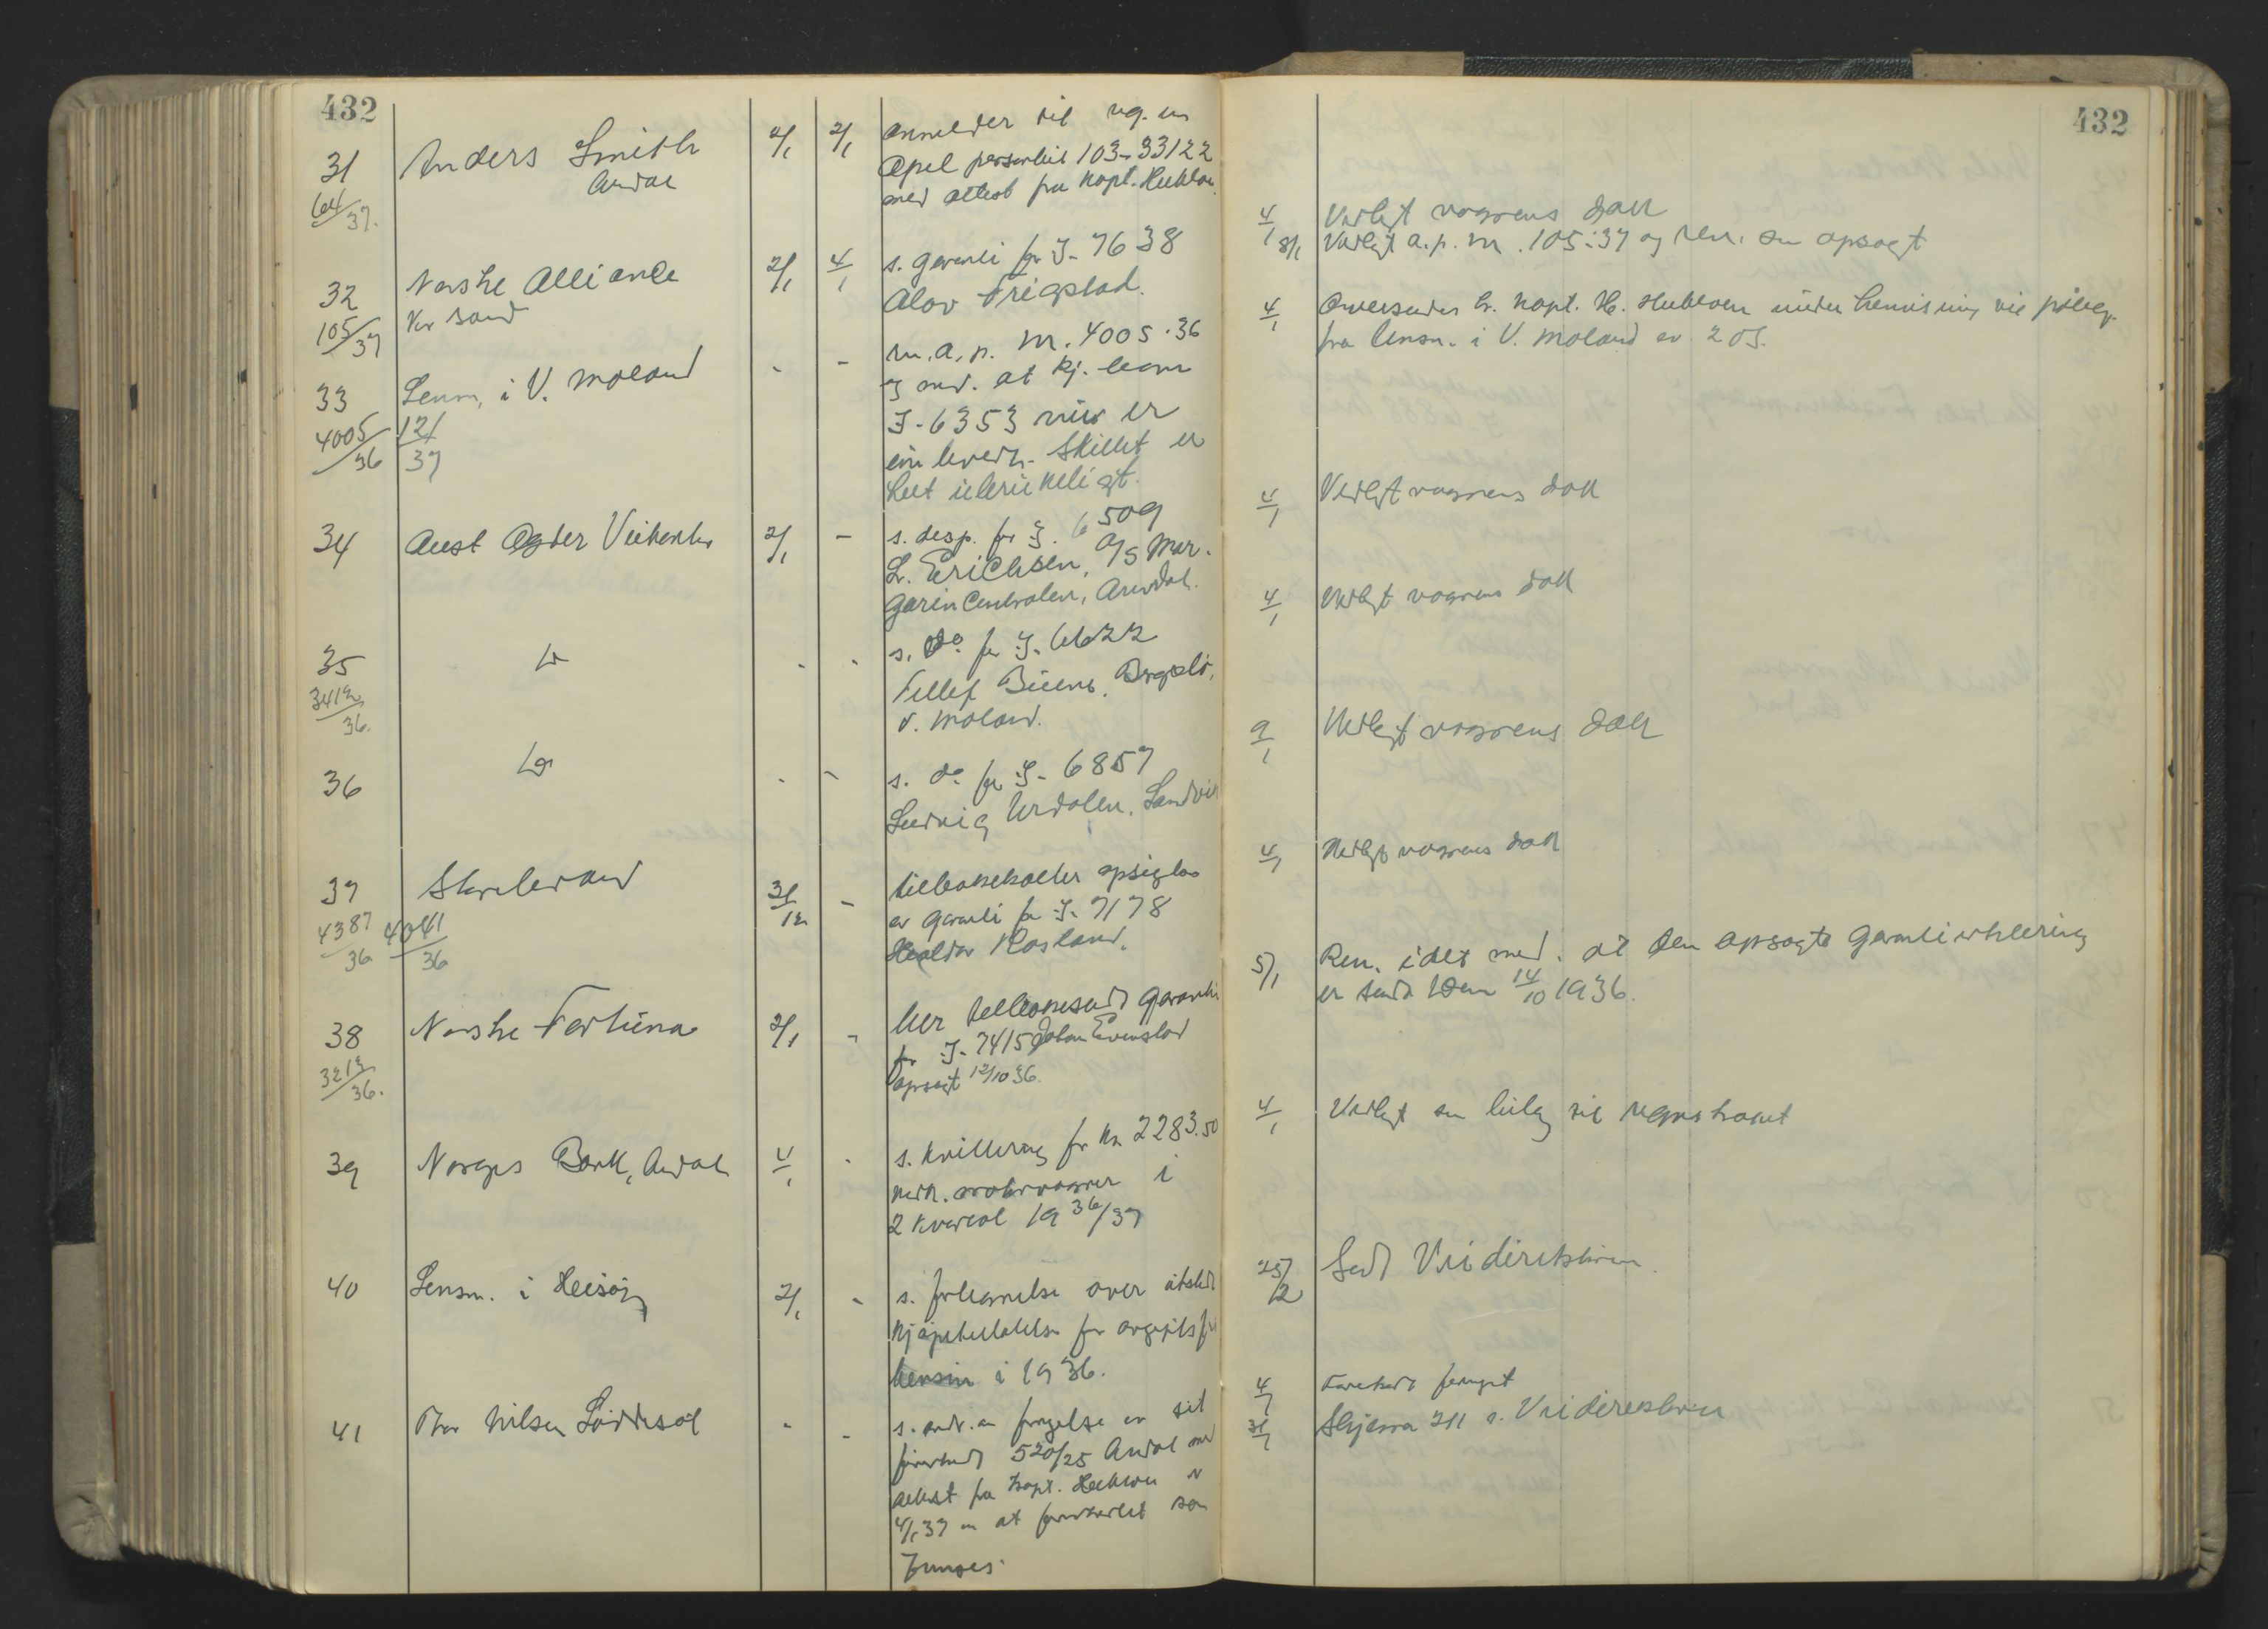 432
31 Anders Smith 2/1 2/1 anmelder til reg. en
64/37. Arndal Opel personbil 103-33122
med attest fra kapt. 
32 Norske Alliance 2/1 4/1 s. garanti for I-7638
105/37 Kr sand Olav Trigstad.
33 Lensm. i V. Moland - - m. a. p. nr. 4005.36
4005/36 121/37 og med. at kj. 
I-6353 nu er
innleveret. Skiltet er
helt ubrukeligt.
34 Aust Agder Veikontor 2/1 - s. desp. for I. 6509
L. Erichsen, A/S Mar-
garincentralen, Arendal.
35 Do - - s. do for I. 6622
3412/36. Tellef Buene, 
V. Moland.
36 Do - - s. do for I-6857
Ludvig Urdalen, Landvik
37 Storebrand 31/12 - tilbakekaller opsigelse
4387/36 4041/36 av garanti for I-7178
Rosland.
38 Norske Fortuna 2/1 - ber tilbakesendt garanti
3212/36. for I-7415 Johan Evenstad
opsagt 12/10 36.
39 Norges Bank, Arndal 4/1 - s. kvittering for kr 2283.50
vedr. motorvogner i
2 kvartal 1936/37
40 Lensm. i 2/1 - s. fortegnelse over utstedte
kjøpetillatelser for avgiftsfri
bensin i 1936.
41 Thor Nilsen Løddesøl - - s. om fornyelse av sit
førerkort 520/25 Arndal med
attest fra kapt. 
4/1 37 om at førerkortet kan
fornyes.
432
4/1 Vedlagt vognens dok
8/1 Vedlagt a.p. nr. 105:37 og ren. som opsagt
4/1 Oversendes hr. kapt. under henvisning til påtegn.
fra lensm. i V. Moland av 2 ds.
4/1 Vedlagt vognens dok
4/1 Vedlagt vognens dok
9/1 Vedlagt vognens dok
4/1 Vedlagt vognens dok
5/1 Ren. idet med. at den opsagte garantierklæring
er sendt Dem 14/10 1936.
4/1 Vedlagt som bilag til regnskapet
25/2 Sendt Veidirektøren.
4/1 Førerkort fornyet
31/1 Skjema s. Veidirektøren